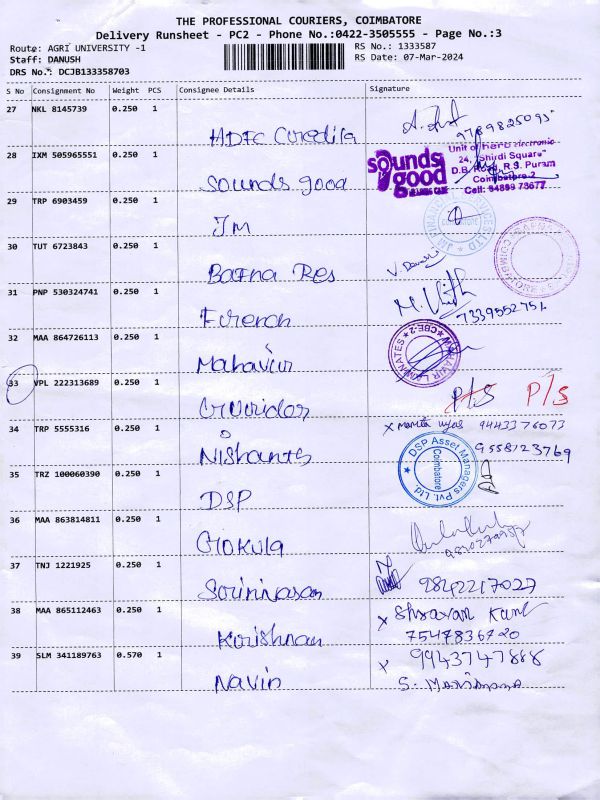 THE PROFESSIONAL COURIERS, COIMBATORE
Delivery Runsheet - PC2 - Phone No.:0422-3505555 - Page No.:3
Route: AGRI UNIVERSITY -1
RS No.: 1333587
Staff: DANUSH
RS Date: 07-Mar-2024
DRS No.: DCJB133358703
S No Consignment No Weight PCS Consignee Details Signature
27 NKL 8145739 0.250 1
HDFC Credila
9789825095
28 IXM 505965551 0.250 1
Sounds good
sounds good
HEARING CARE
Unit of herb electronic
24, "Shirdi Square"
D.B. Road, R.S. Puram
Coimbatore-2
Cell: 94899 78677
29 TRP 6903459 0.250 1
JM
30 TUT 6723843 0.250 1
Bafna Res
31 PNP 530324741 0.250 1
French
7339552751
32 MAA 864726113 0.250 1
Mahavir
MAHAVIR LAMINATES
CBE-2
33 VPL 222313689 0.250 1
P/S P/S
34 TRP 5555316 0.250 1
Nishants
x mamta vyas 9443376073
9558123769
35 TRZ 100060390 0.250 1
DSP
DSP Asset Managers Pvt. Ltd.
Coimbatore
36 MAA 863814811 0.250 1
Gokula
37 TNJ 1221925 0.250 1
Srinivasan
9842217027
38 MAA 865112463 0.250 1
Krishnan
x Shravan Kuml
7547836720
39 SLM 341189763 0.570 1
Navin
x 9943747888